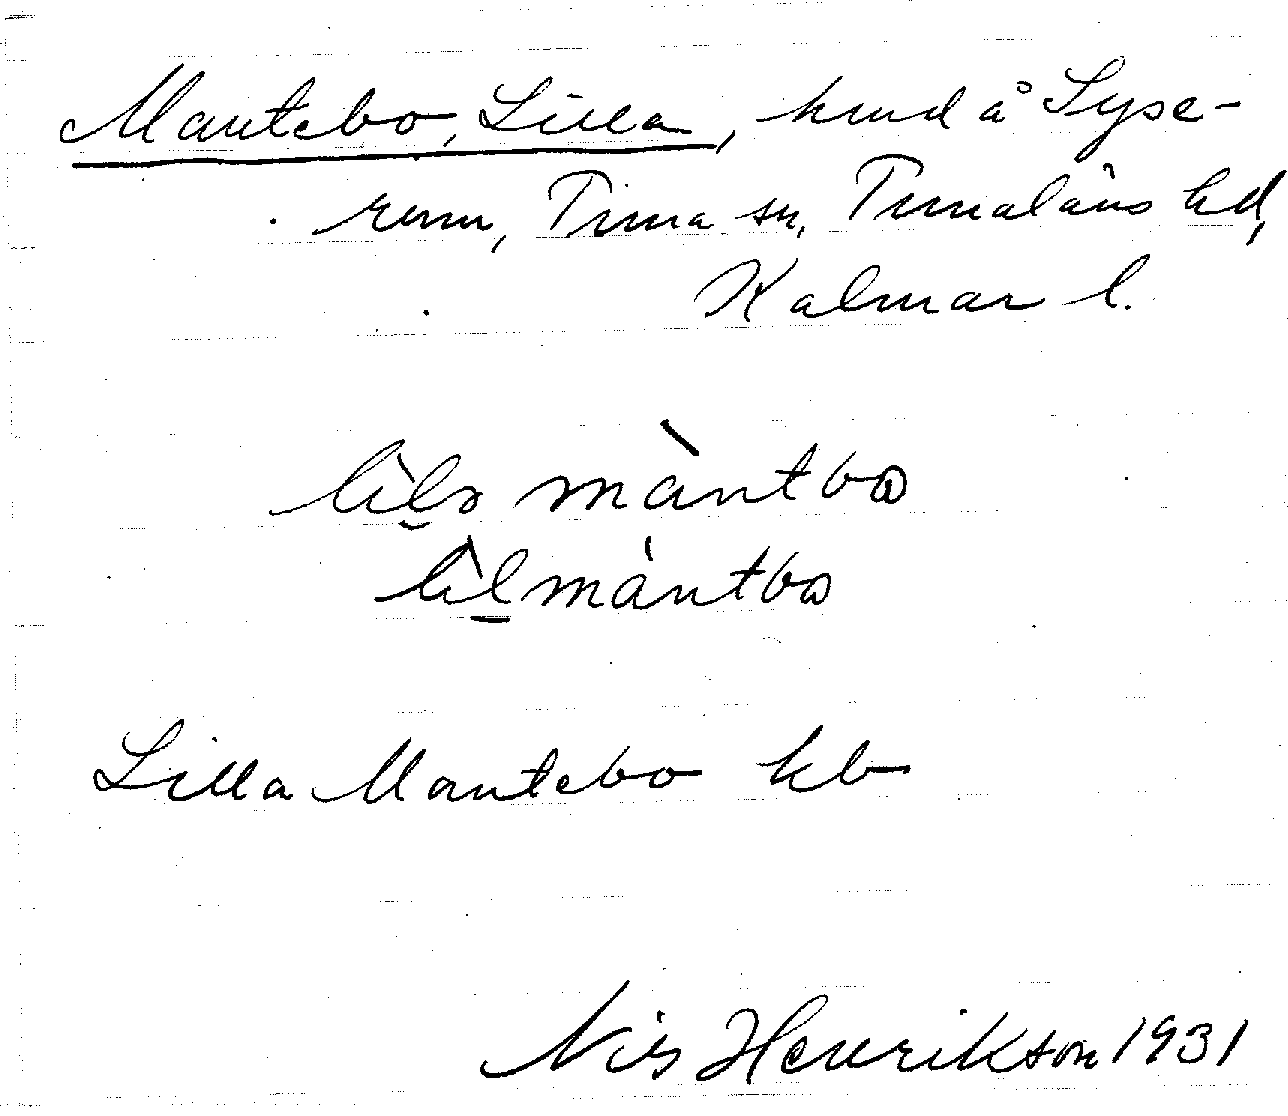 Mantebo, Lilla, hmd å Syse-
rum, Tuna sn, Tunaläns hd,
Kalmar l.
lìla màntbo
lìlmàntbo
Lilla Mantebo kb
Nils Henrikson 1931